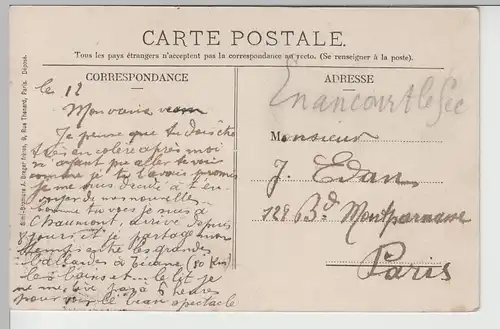 CARTE POSTALE.
Tous les pays étrangers n'acceptent pas la correspondance au recto. (Se renseigner à la poste).
CORRESPONDANCE
ADRESSE
le 12
Mon vieux
Je pense que tu dois être
très en colère après moi
n'ayant pas aller te voir
comme je te l'avais promis
je me suis décidé à t'en-
de mes nouvelles
comme tu vois je suis à
Chaumont, arrivé depuis
8 jours, et je partage mon
temps entre les grandes
ballades à (80 Km)
les bains et le lit je
ne me lève pas à 6 heures
pour voir le beau spectacle
Enancourt le Sec
Monsieur
J. Edan
128 Bd Montparnasse
Paris
Simi-Bromure A. Breger frères, 9, Rue Thénard, Paris. Déposé.